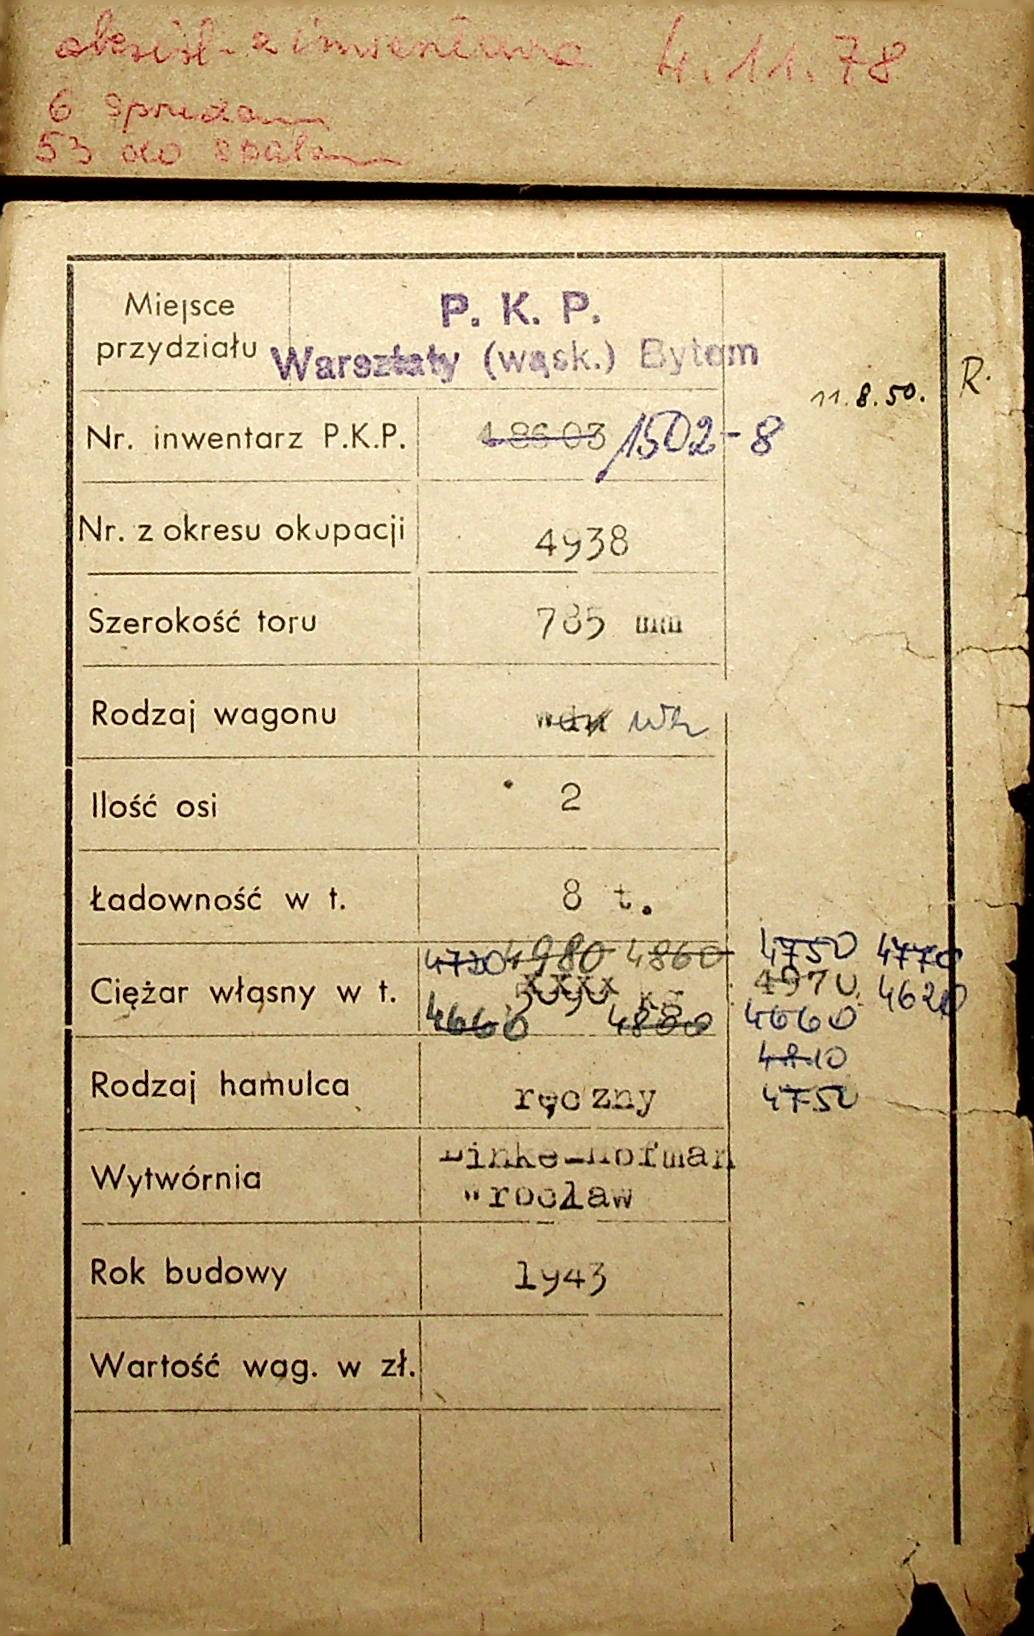 z 4.11.78
6
53 do
Miejsce
przydziału
P. K. P.
Warsztaty (wąsk.) Bytom
11.8.50. R.
Nr. inwentarz P.K.P. 1502-8
Nr. z okresu okupacji 4938
Szerokość toru 785 mm
Rodzaj wagonu
Ilość osi 2
Ładowność w t. 8 t.
4980 4860 4750 4770
Ciężar własny w t. 4970 4620
4660 4880 4660
4810
4750
Rodzaj hamulca ręczny
Wytwórnia Linke-Hofman
Wrocław
Rok budowy 1943
Wartość wag. w zł.